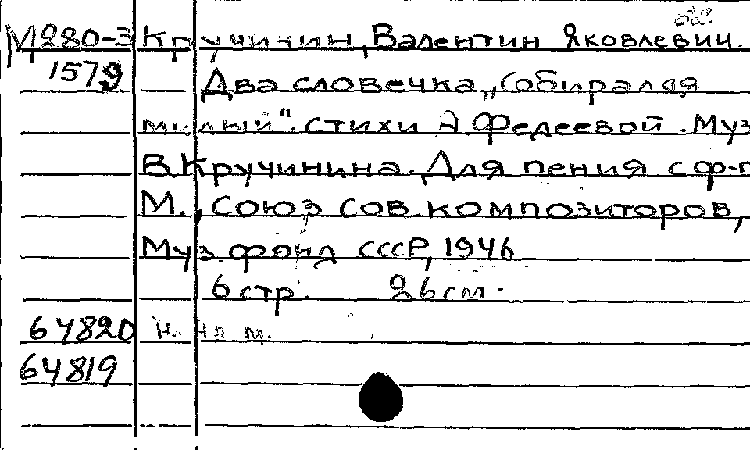 М280-3 Кручинин, Валентин Яковлевич.
1579 Два словечка „Собирался
милый". стихи А. Федеевой. Муз
В. Кручинина. Для пения с ф-п
М., Союз сов. композиторов,
Муз. фонд СССР, 1946
6 стр. 26 см.
64820 н. нп м.
64819